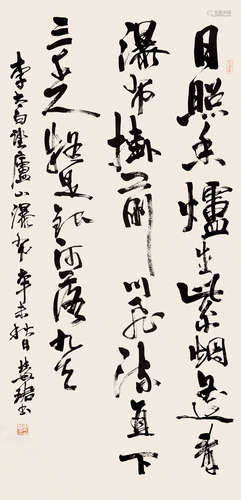 日照香爐生紫烟遥看
瀑布掛前川飛流直下
三千尺疑是銀河落九天
李太白望廬山瀑布辛未秋日慧珺書